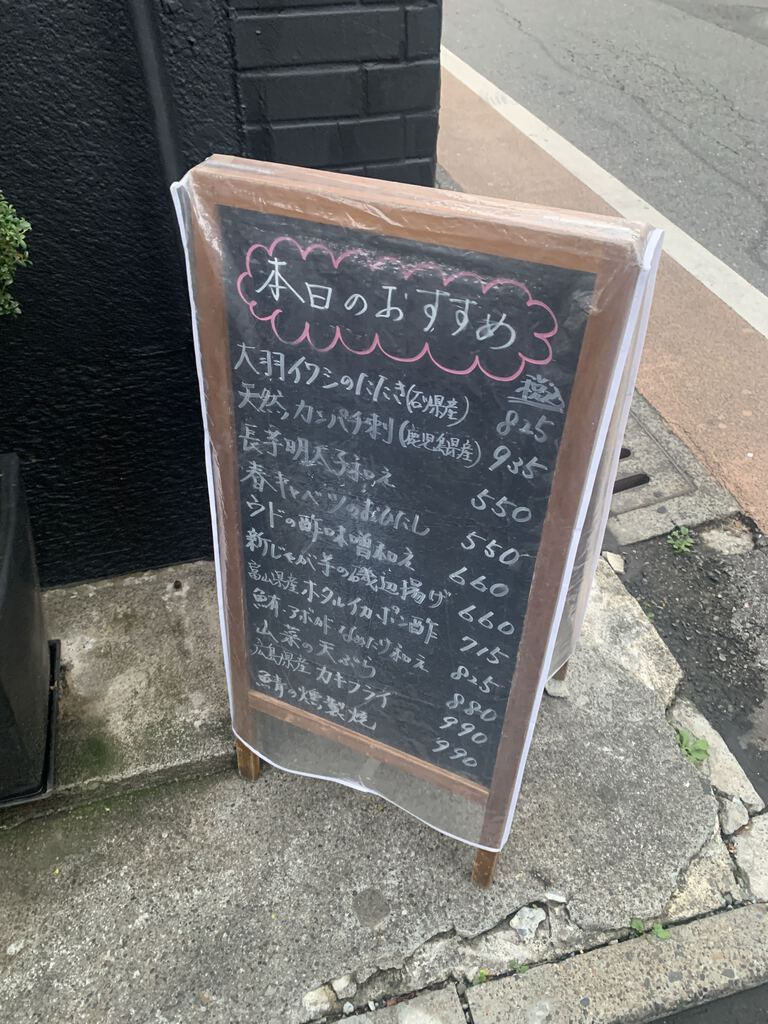 本日のおすすめ
税込
大羽イワシのたたき(石川県産) 825
天然カンパチ刺(鹿児島県産) 935
長芋明太子和え 550
春キャベツのおひたし 550
ウドの酢味噌和え 660
新じゃが芋の磯辺揚げ 660
富山県産ホタルイカポン酢 715
鮪アボカドなめたけ和え 825
山菜の天ぷら 880
広島県産カキフライ 990
鯖の燻製焼 990